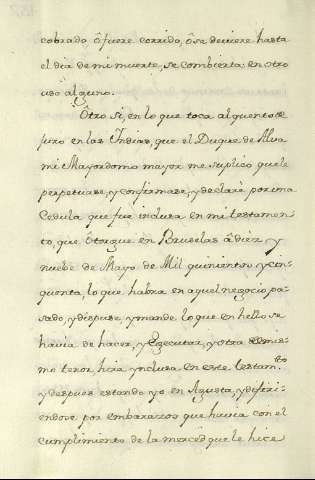 cobrado, ô fuere corrido, ô se deviere hasta
el dia de mi muerte, se combierta en otro
uso alguno.
Ôtro si, en lo que toca al quento de
juro en las Indias, que el Duque de Alva
mi Mayordomo mayor me suplicó que le
perpetuase, y confirmase, y declaré por una
Cedula que fue incluta en mi testamen-
to, que ôtorgue en Bruselas â diez y
nuebe de Mayo de Mil quinientos y cin-
quenta, lo que habra en aquel negocio pa-
sado, y dispuse, y mande lo que en hello se
havia de hacer, y Executar, y otra del mis-
mo tenor, hiza ynclusa en este testam.to
y despues estando yo en Agusta, y difiri-
endose por embarazos que havia con el
cumplimiento de la merced que le hice